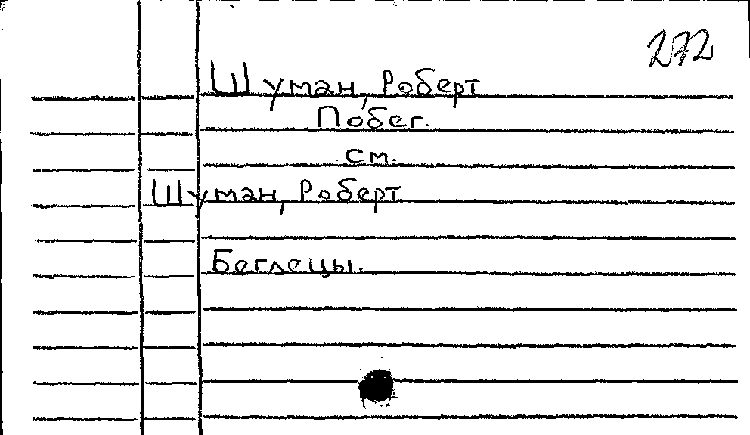 272
Шуман, Роберт
Побег.
см.
Шуман, Роберт
Беглецы.